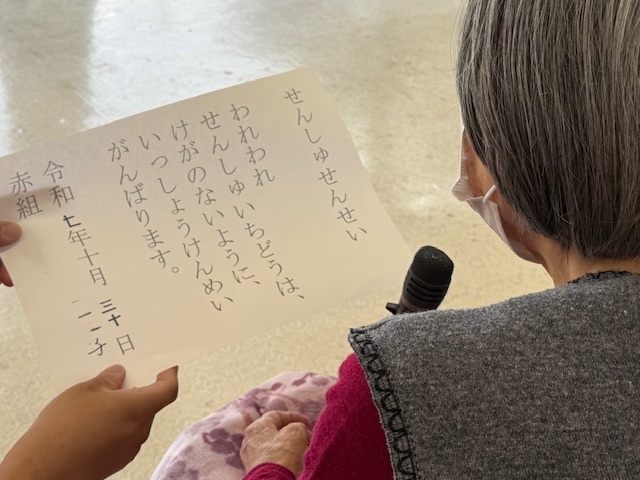 せんしゅせんせい
われわれ
せんしゅいちどうは、
けがのないように、
いっしょうけんめい
がんばります。
令和七年十月三十日
赤組